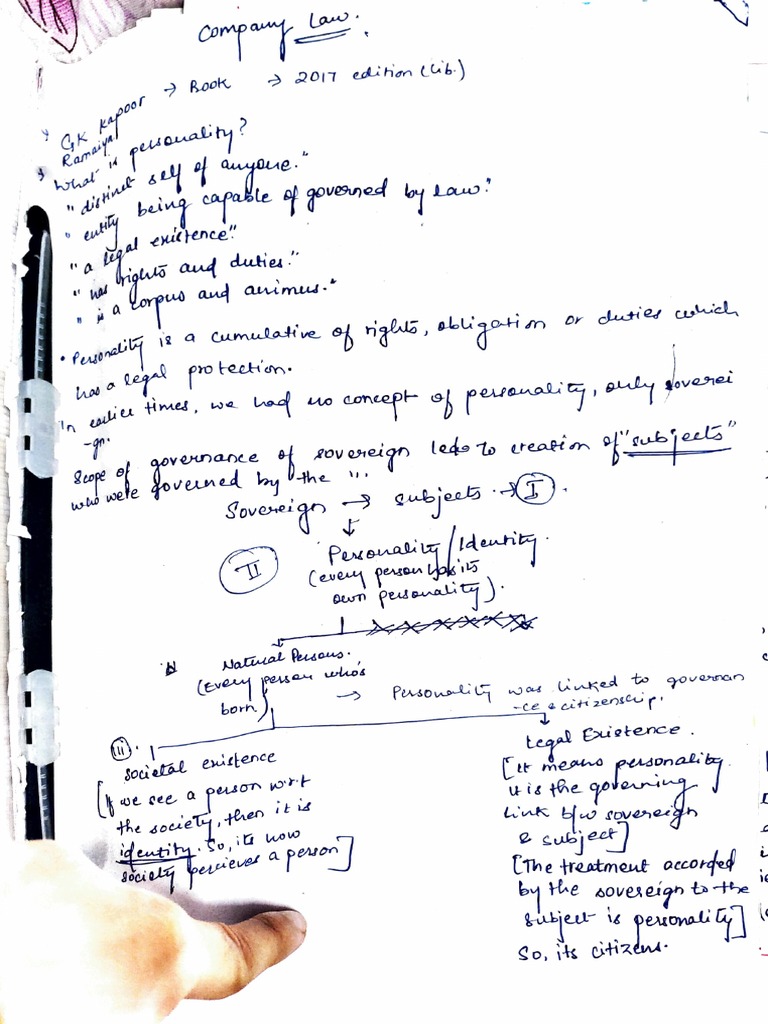 Company Law.
GK Kapoor → Book → 2017 edition (Lib.)
Ramaiya
What is personality?
"distinct self of anyone."
"entity being capable of governed by law."
"a legal existence"
"has rights and duties."
"is a corpus and animus."
• Personality is a cumulative of rights, obligation or duties which
has a legal protection.
In earlier times, we had no concept of personality, only soverei
-gn.
Scope of governance of sovereign leds to creation of "subjects"
who were governed by the "..
Sovereign → subjects. → I.
II Personality/Identity.
(every person has its
own personality).
Natural Persons.
(Every person who's
born)
→ Personality was linked to governan
-ce & citizenship.
III.
Societal existence
[If we see a person w.r.t
the society, then it is
identity. So, its how
society percieves a person]
Legal Existence.
[It means personality.
It is the governing
link b/w sovereign
& subject]
[The treatment accorded
by the sovereign to the
subject is personality]
So, its citizens.